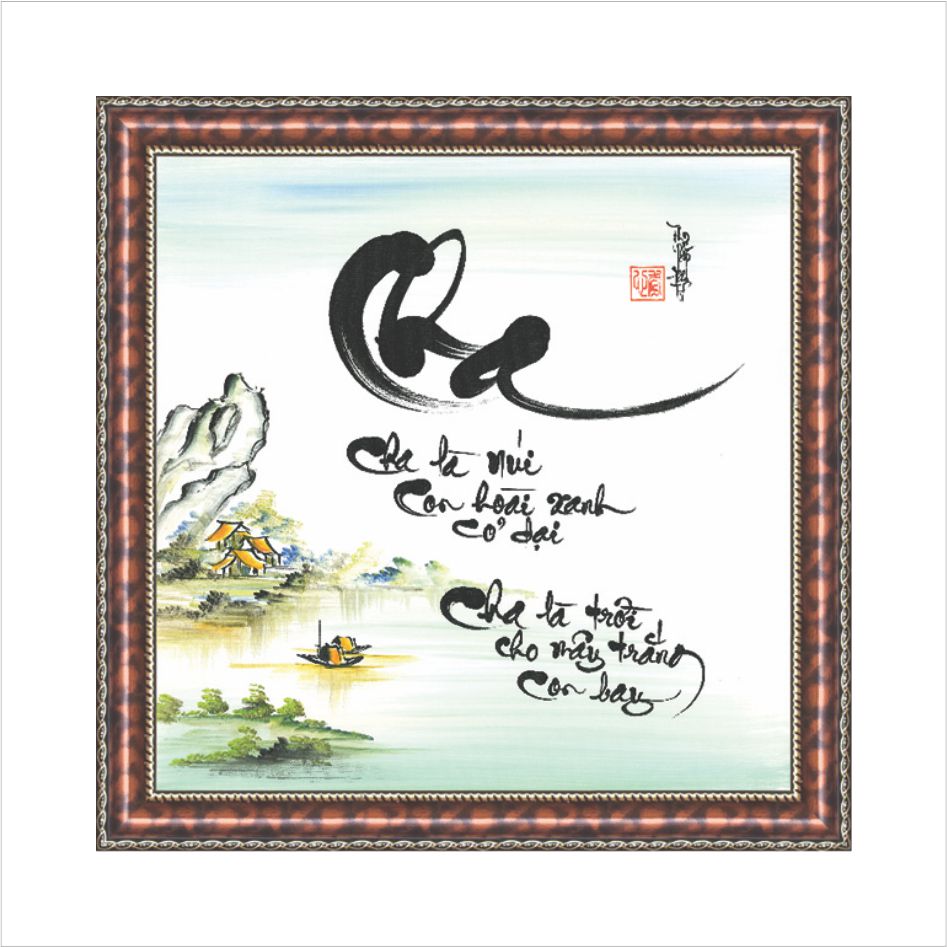 Cha
Cha là núi
Con hoài xanh
cỏ dại
Cha là trời
cho mây trắng
con bay